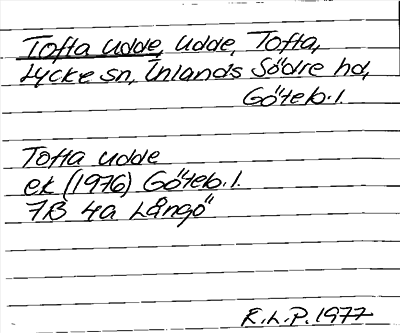 Tofta udde, Udde, Tofta,
Lycke sn, Inlands Södre hd,
Göteb. l.
Tofta udde
ek (1976) Göteb. l.
7B 4a Långö
R.L.P. 1977